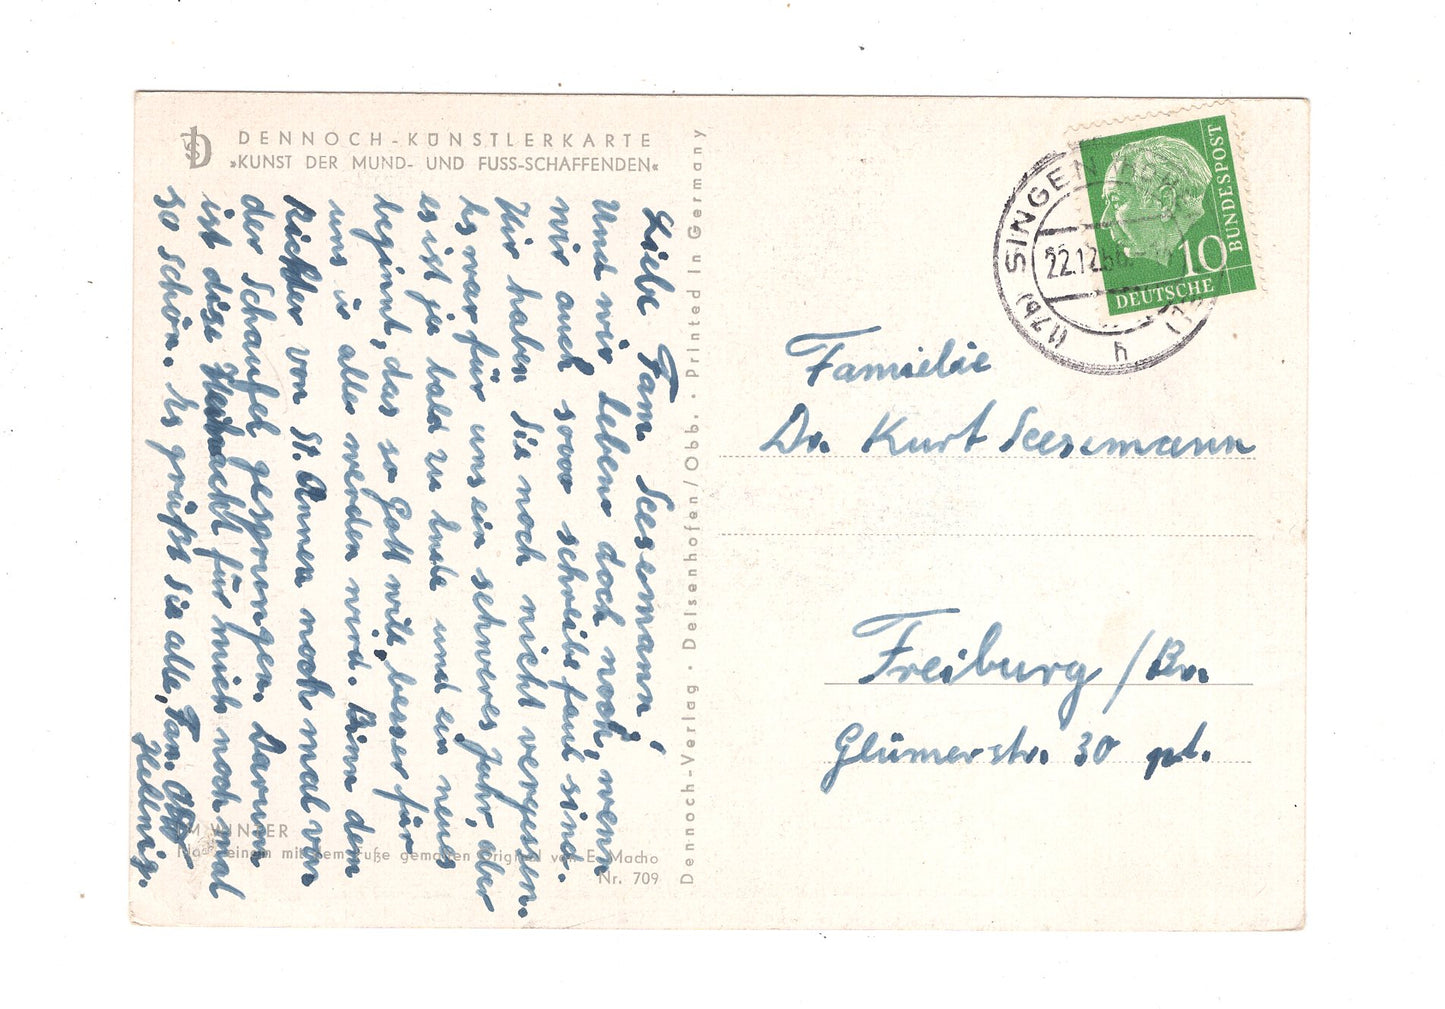 DENNOCH-KÜNSTLERKARTE
»KUNST DER MUND- UND FUSS-SCHAFFENDEN«
Liebe Fam. Seesemann!
Und wir leben doch noch, wenn
wir auch sooo schreibfaul sind.
Wir haben Sie noch nicht vergessen.
Es war für uns ein schweres Jahr, aber
es ist ja bald zu Ende und ein neues
beginnt, das so Gott will, besser für
uns in alles werden wird. Binn dem
Richter von St. Annen noch mal von
der Schaufel gesprungen. Darum
ist dise Weihnacht für mich noch mal
so schön. Es grüßt Sie alle, Fam.
Hellwig.
IM WINTER
Nach einem mit dem Fuße gemalten Original von E. Macho
Nr. 709
Dennoch-Verlag · Deisenhofen/Obb. · Printed in Germany
(17b) SINGEN
22.12.56
h
10
DEUTSCHE
BUNDESPOST
Familie
Dr. Kurt Seesemann
Freiburg/Br.
Glümerstr. 30 pt.